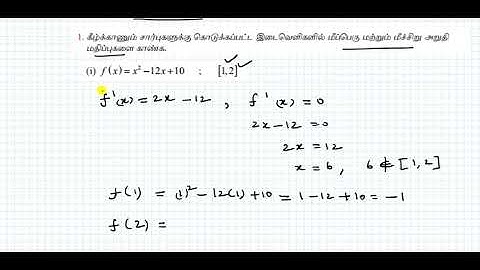 1. கீழ்க்காணும் சார்புகளுக்கு கொடுக்கப்பட்ட இடைவெளிகளில் மீப்பெரு மற்றும் மீச்சிறு அறுதி
மதிப்புகளை காண்க.
(i) f(x) = x² − 12x + 10 ; [1, 2] ✓✓
f'(x) = 2x − 12 , f'(x) = 0
2x − 12 = 0
2x = 12
x = 6, 6 ∉ [1, 2]
f(1) = (1)² − 12(1) + 10 = 1 − 12 + 10 = −1
f(2) =